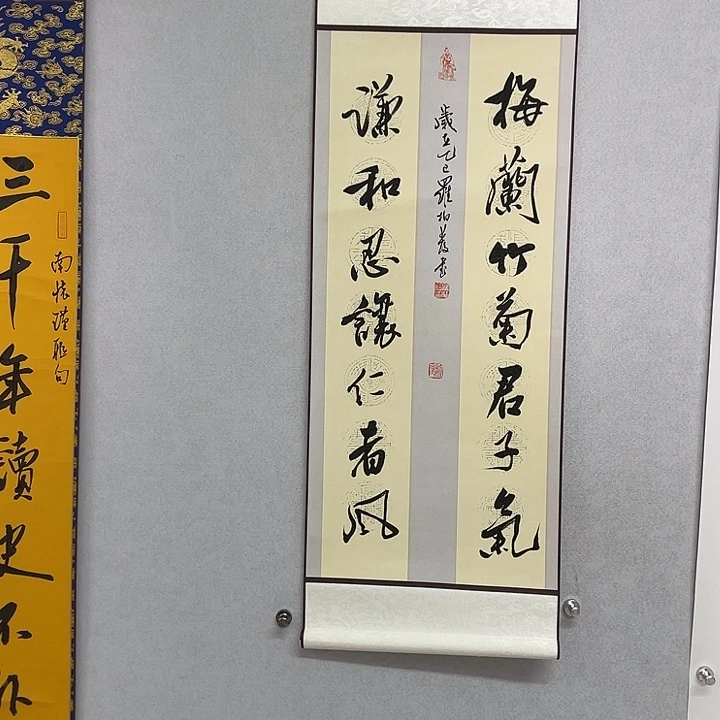 梅蘭竹菊君子氣
謙和忍讓仁者風
歲在乙巳羅柏茂書
三千年讀史不外
南懷瑾聯句